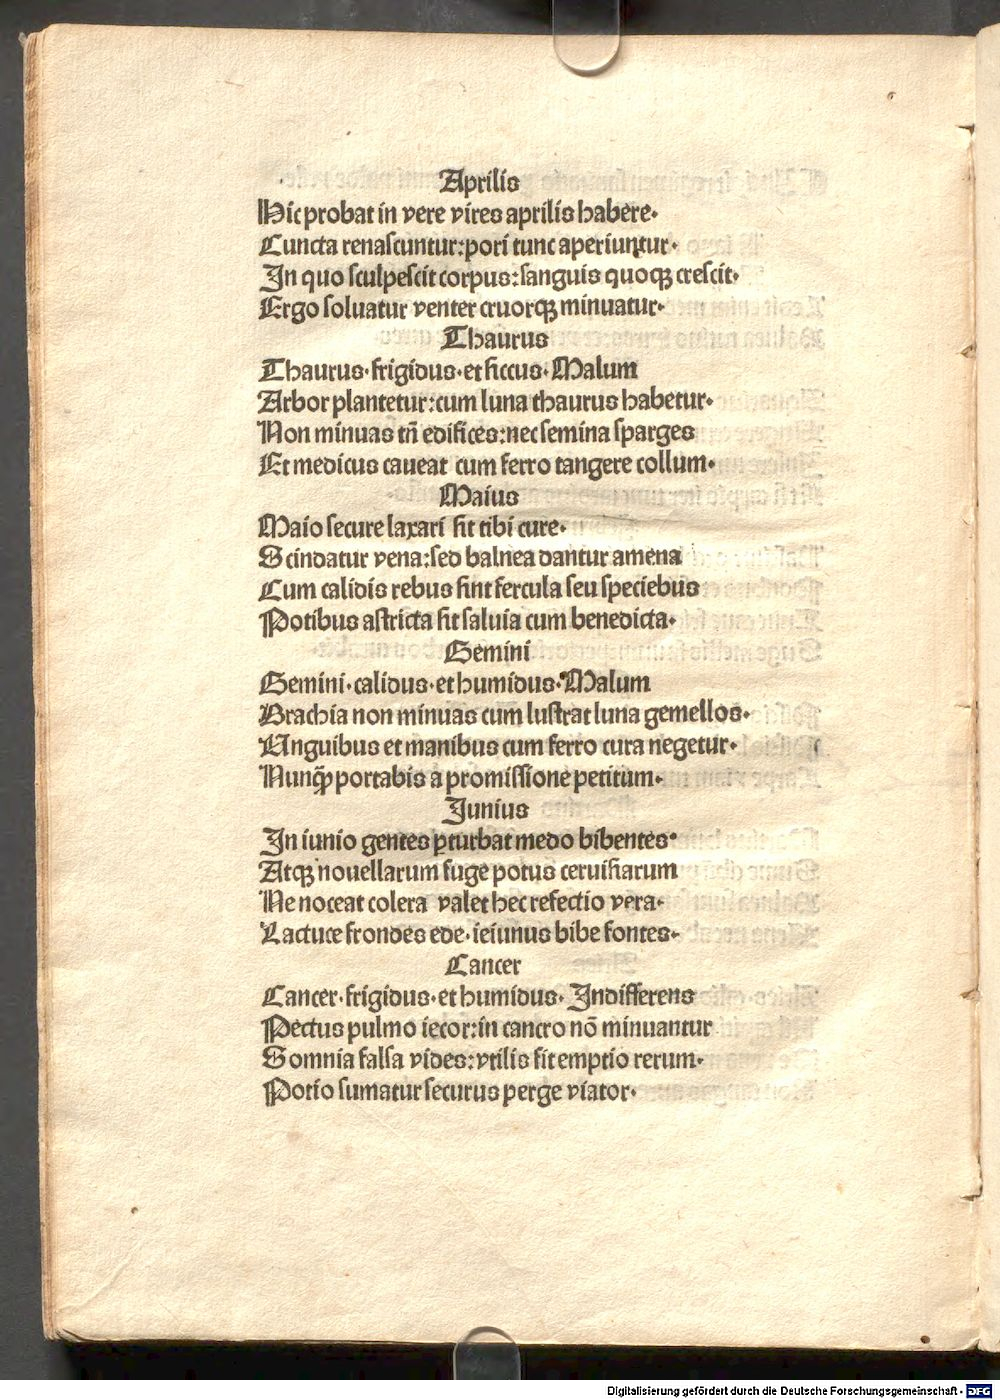 Aprilis
Hic probat in vere vires aprilis habere.
Cuncta renascuntur:pori tunc aperiuntur.
In quo sculpescit corpus:sanguis quoqꝫ crescit.
Ergo soluatur venter cruorqꝫ minuatur.
Thaurus
Thaurus.frigidus.et siccus.Malum
Arbor plantetur:cum luna thaurus habetur.
Non minuas tñ edifices:nec semina sparges
Et medicus caueat cum ferro tangere collum.
Maius
Maio secure laxari sit tibi cure.
Scindatur vena:sed balnea dantur amena
Cum calidis rebus sint fercula seu speciebus
Potibus astricta sit saluia cum benedicta.
Gemini
Gemini.calidus.et humidus.Malum
Brachia non minuas cum lustrat luna gemellos.
Unguibus et manibus cum ferro cura negetur.
Nunqꝫ portabis a promissione petitum.
Junius
In iunio gentes ꝑturbat medo bibentes.
Atqꝫ nouellarum fuge potus ceruisiarum
Ne noceat colera valet hec refectio vera.
Lactuce frondes ede.ieiunus bibe fontes.
Cancer
Cancer.frigidus.et humidus. Indifferens
Pectus pulmo iecor:in cancro nō minuantur
Somnia falsa vides:vtilis sit emptio rerum.
Potio sumatur securus perge viator.
Digitalisierung gefördert durch die Deutsche Forschungsgemeinschaft - DFG